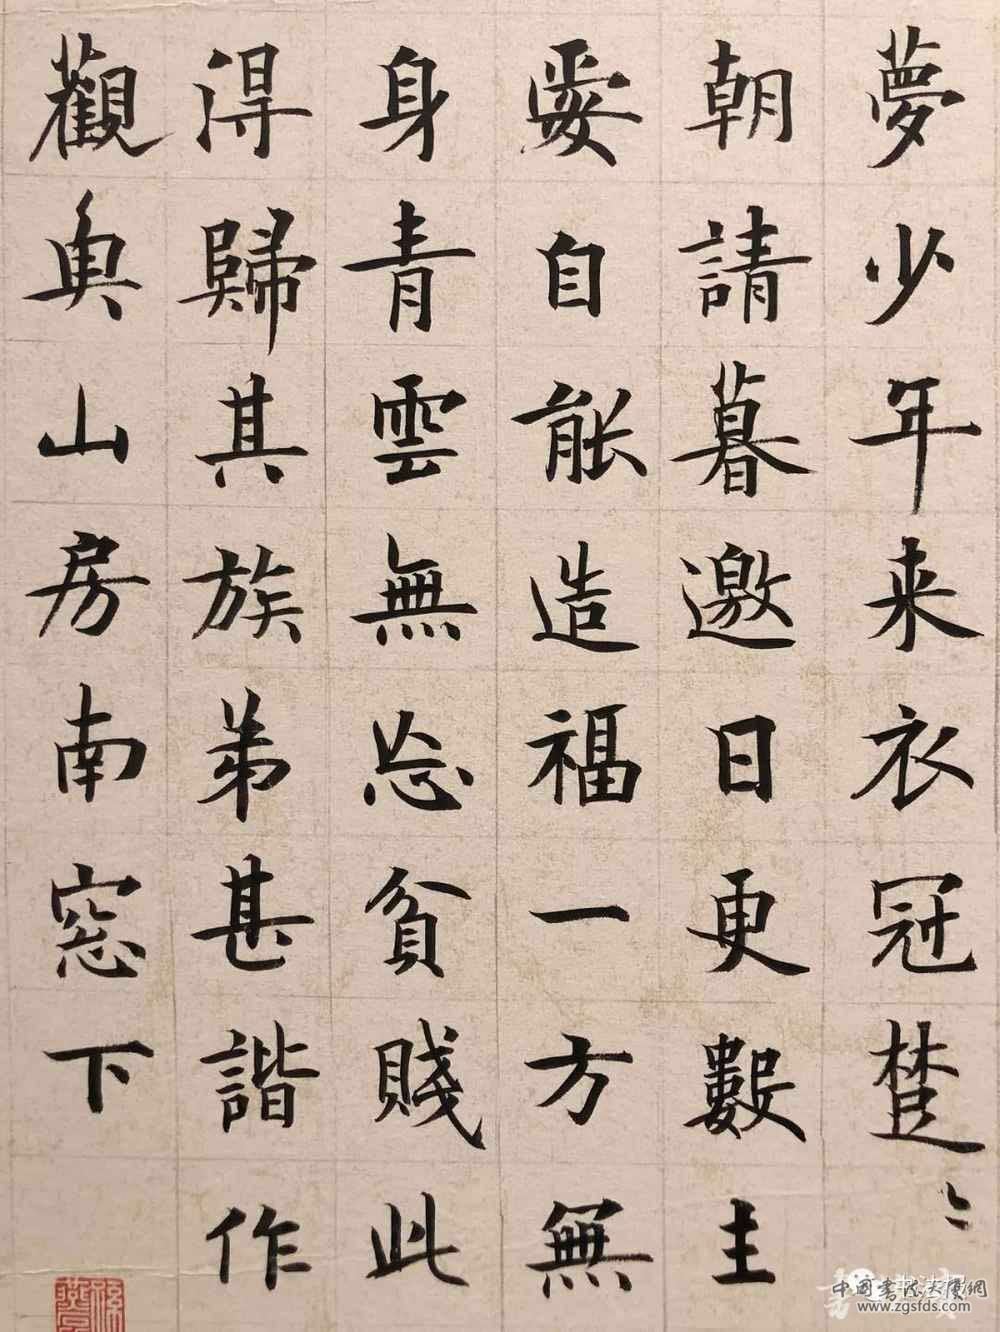 夢少年来衣冠楚〻
朝請暮邀日更數主
自能造福一方無
身青雲無忘貧賤此
得歸其族弟甚諧作
觀山房南窓下
中国書法大厦網
www.zgsfds.com